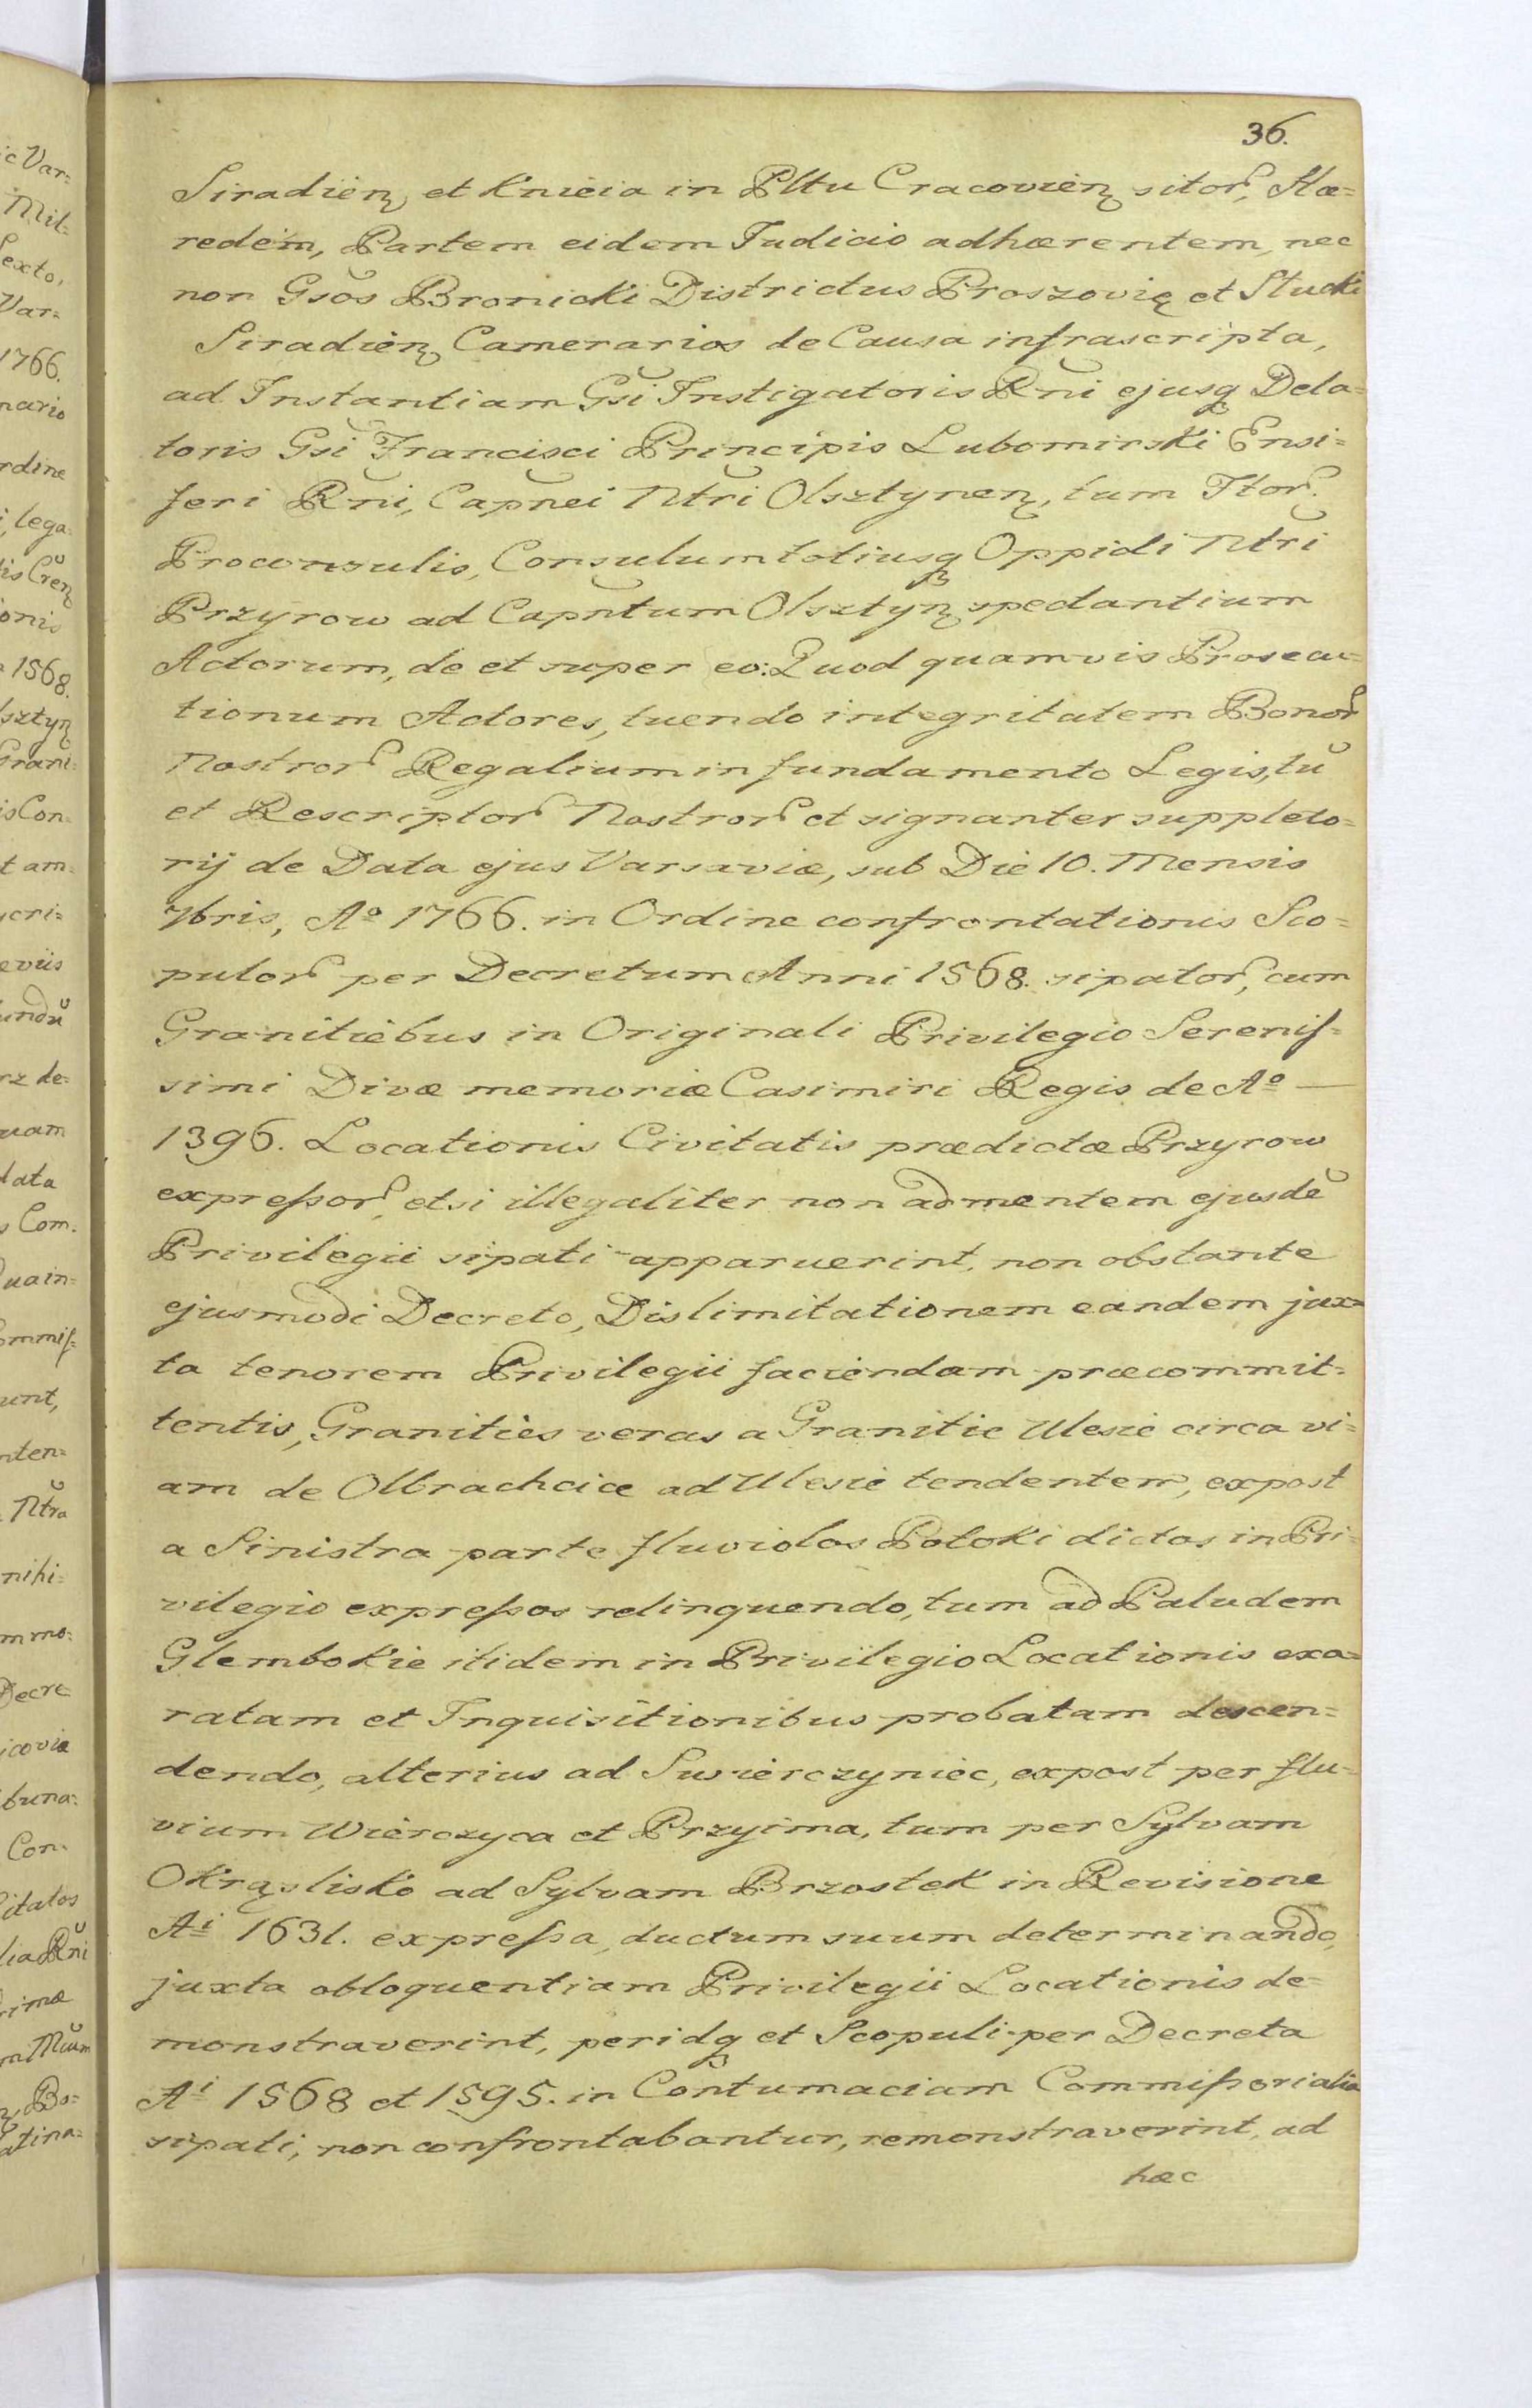 36.
Siradień et Kniecia in Pltu Cracovień sitor, Hæ=
redem, Partem eidem Judicio adhærentem, nec
non Gsos Bronicki Districtus Proszovię et Stucki
Siradień Camerarios de Causa infrascripta,
ad Instantiam Gsi Instigatoris Rñi ejusq Dela=
toris Gsi Francisci Principis Lubomirski Ensi=
feri Rñi, Capnei Ntri Olsztyneń, tum Ttor.
Proconsulis, Consulum totiusq Oppidi Ntri
Przyrow ad Capntum Olsztyń spectantium
Actorum, de et super eo: Quod quamvis Prosecu=
tionum Actores, tuendo integritatem Bonor
Nostror Regalium in fundamento Legis, tũ
et Rescriptor Nostror et signanter suppleto=
rij de Data ejus Varsaviæ, sub Die 10. Mensis
7bris, Aº 1766. in Ordine confrontationis Sco=
pulor per Decretum Anni 1568. sipator, cum
Granitiebus in Originali Privilegio Serenis=
simi Divæ memoriæ Casimiri Regis de Aº —
1396. Locationis Civitatis prædictæ Przyrow
expressor, etsi illegaliter non ad mentem ejusdẽ
Privilegii sipati apparuerint, non obstante
ejusmodi Decreto, Dislimitationem eandem jux=
ta tenorem Privilegii faciendam præcommit=
tentis, Granities veras a Granitie Ulesie circa vi=
am de Olbrachcice ad Ulesie tendentem, expost
a Sinistra parte fluviolos Potoki dictos in Pri=
vilegio expressos relinquendo, tum ad Paludem
Glembokie itidem in Privilegio Locationis exa=
ratam et Inquisitionibus probatam descen=
dendo, alterius ad Swierczyniec, expost per flu=
vium Wierczyca et Przyima, tum per Sylvam
Okrąslisko ad Sylvam Brzostek in Revisione
Ai 1631. expressa, ductum suum determinando,
juxta obloquentiam Privilegii Locationis de=
monstraverint, peridq et Scopuli per Decreta
Ai 1568 et 1595. in Contumaciam Commissorialia
sipati, non confrontabantur, remonstraverint, ad
hæc